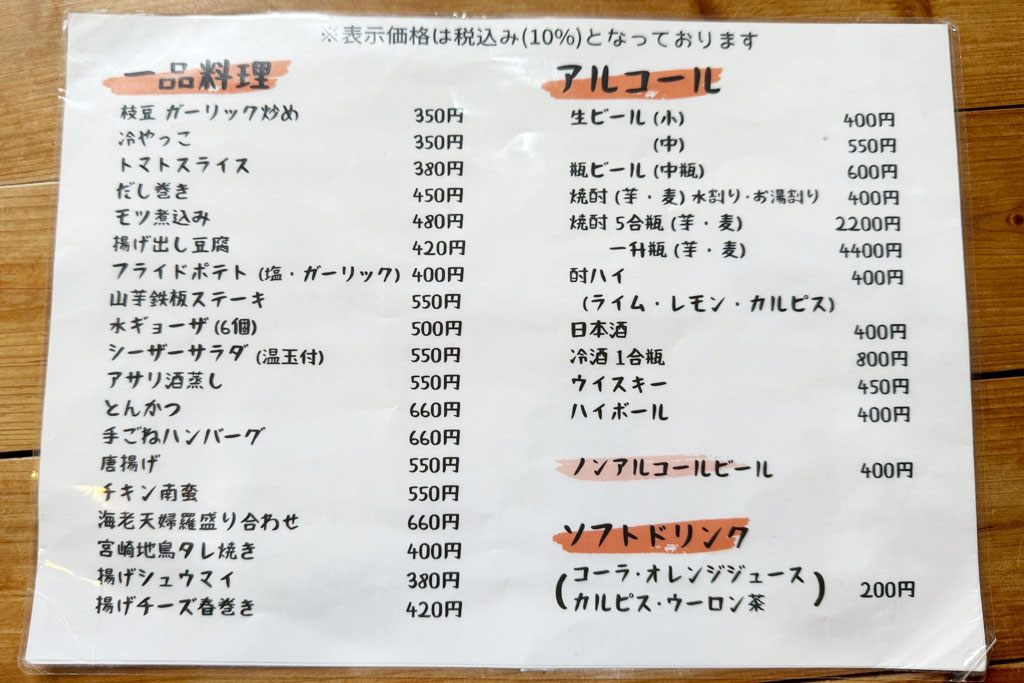 ※表示価格は税込み(10%)となっております
一品料理
枝豆 ガーリック炒め 350円
冷やっこ 350円
トマトスライス 380円
だし巻き 450円
モツ煮込み 480円
揚げ出し豆腐 420円
フライドポテト (塩・ガーリック) 400円
山芋鉄板ステーキ 550円
水ギョーザ (6個) 500円
シーザーサラダ (温玉付) 550円
アサリ酒蒸し 550円
とんかつ 660円
手ごねハンバーグ 660円
唐揚げ 550円
チキン南蛮 550円
海老天婦羅盛り合わせ 660円
宮崎地鳥タレ焼き 400円
揚げシュウマイ 380円
揚げチーズ春巻き 420円
アルコール
生ビール (小) 400円
(中) 550円
瓶ビール (中瓶) 600円
焼酎 (芋・麦) 水割り・お湯割り 400円
焼酎 5合瓶 (芋・麦) 2200円
一升瓶 (芋・麦) 4400円
酎ハイ 400円
(ライム・レモン・カルピス)
日本酒 400円
冷酒 1合瓶 800円
ウイスキー 450円
ハイボール 400円
ノンアルコールビール 400円
ソフトドリンク
(コーラ・オレンジジュース
カルピス・ウーロン茶) 200円